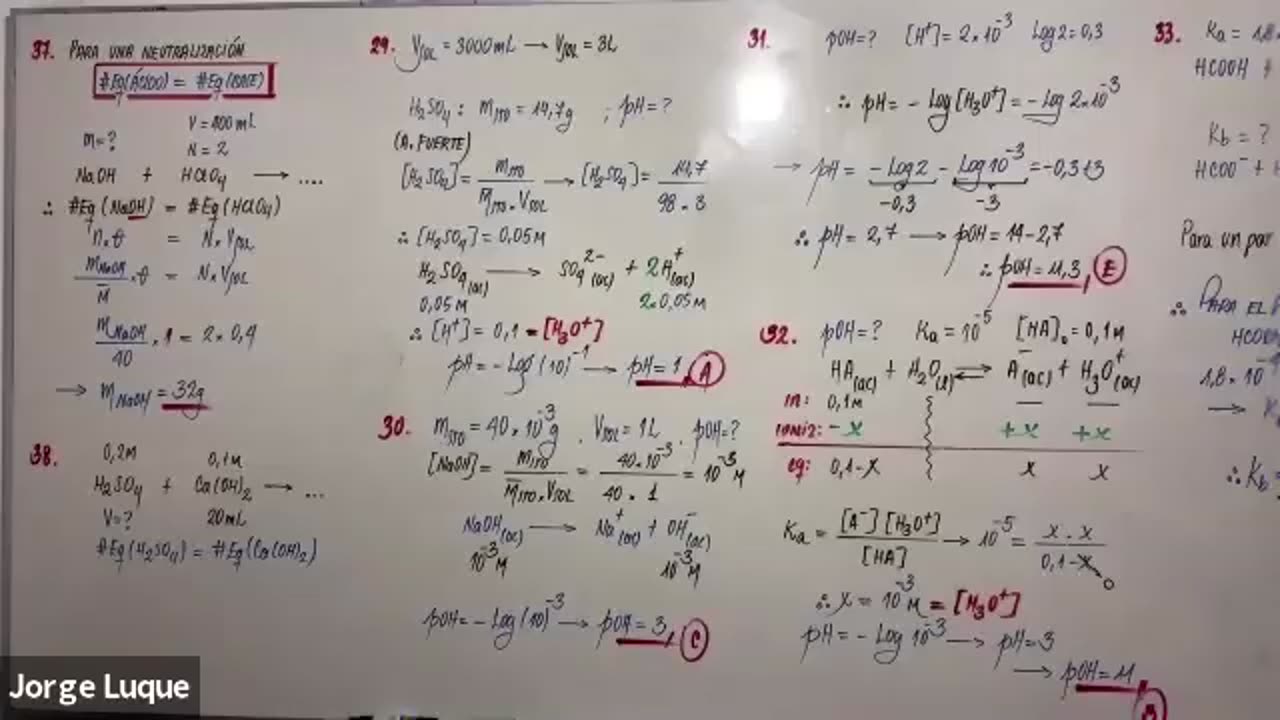 37. PARA UNA NEUTRALIZACIÓN
#Eq(ÁCIDO) = #Eq(BASE)
m=? V=400mL
N=2
NaOH + HClO₄ → ....
∴ #Eq(NaOH) = #Eq(HClO₄)
n.θ = N.Vsol
mNaOH/M̄ .θ = N×Vsol
mNaOH/40 . 1 = 2×0,4
→ mNaOH = 32g
38. 0,2M 0,1M
H₂SO₄ + Ca(OH)₂ → ...
V=? 20mL
#Eq(H₂SO₄) = #Eq(Ca(OH)₂)
29. Vsol = 3000mL → Vsol = 3L
H₂SO₄: msto = 14,7g ; pH=?
(A. FUERTE)
[H₂SO₄] = msto/M̄sto.Vsol → [H₂SO₄] = 14,7/98.3
∴ [H₂SO₄] = 0,05M
H₂SO₄(ac) → SO₄²⁻(ac) + 2H⁺(ac)
0,05M 2×0,05M
∴ [H⁺] = 0,1 = [H₃O⁺]
pH = -Log(10)⁻¹ → pH = 1, A
30. msto = 40×10⁻³g . Vsol = 1L . pOH=?
[NaOH] = msto/M̄sto.Vsol = 40.10⁻³/40.1 = 10⁻³M
NaOH(ac) → Na⁺(ac) + OH⁻(ac)
10⁻³M 10⁻³M
pOH = -Log(10)⁻³ → pOH = 3, C
31. pOH=? [H⁺] = 2×10⁻³ Log2=0,3
∴ pH = -Log[H₃O⁺] = -Log 2×10⁻³
→ pH = -Log2 - Log10⁻³ = -0,3+3
-0,3 -3
∴ pH = 2,7 → pOH = 14-2,7
∴ pOH = 11,3, E
32. pOH=? Ka = 10⁻⁵ [HA]₀ = 0,1M
HA(ac) + H₂O(l) ⇌ A⁻(ac) + H₃O⁺(ac)
in: 0,1M — —
ioniz: -x +x +x
eq: 0,1-x x x
Ka = [A⁻][H₃O⁺]/[HA] → 10⁻⁵ = x.x/0,1-x 0
∴ x = 10⁻³M = [H₃O⁺]
pH = -Log 10⁻³ → pH=3
→ pOH = 11, B
33. Ka = 1,8
HCOOH +
Kb = ?
HCOO⁻ +
Para un par
∴ PARA EL
HCOO
1,8×10⁻
→ K
∴ Kb =
Jorge Luque